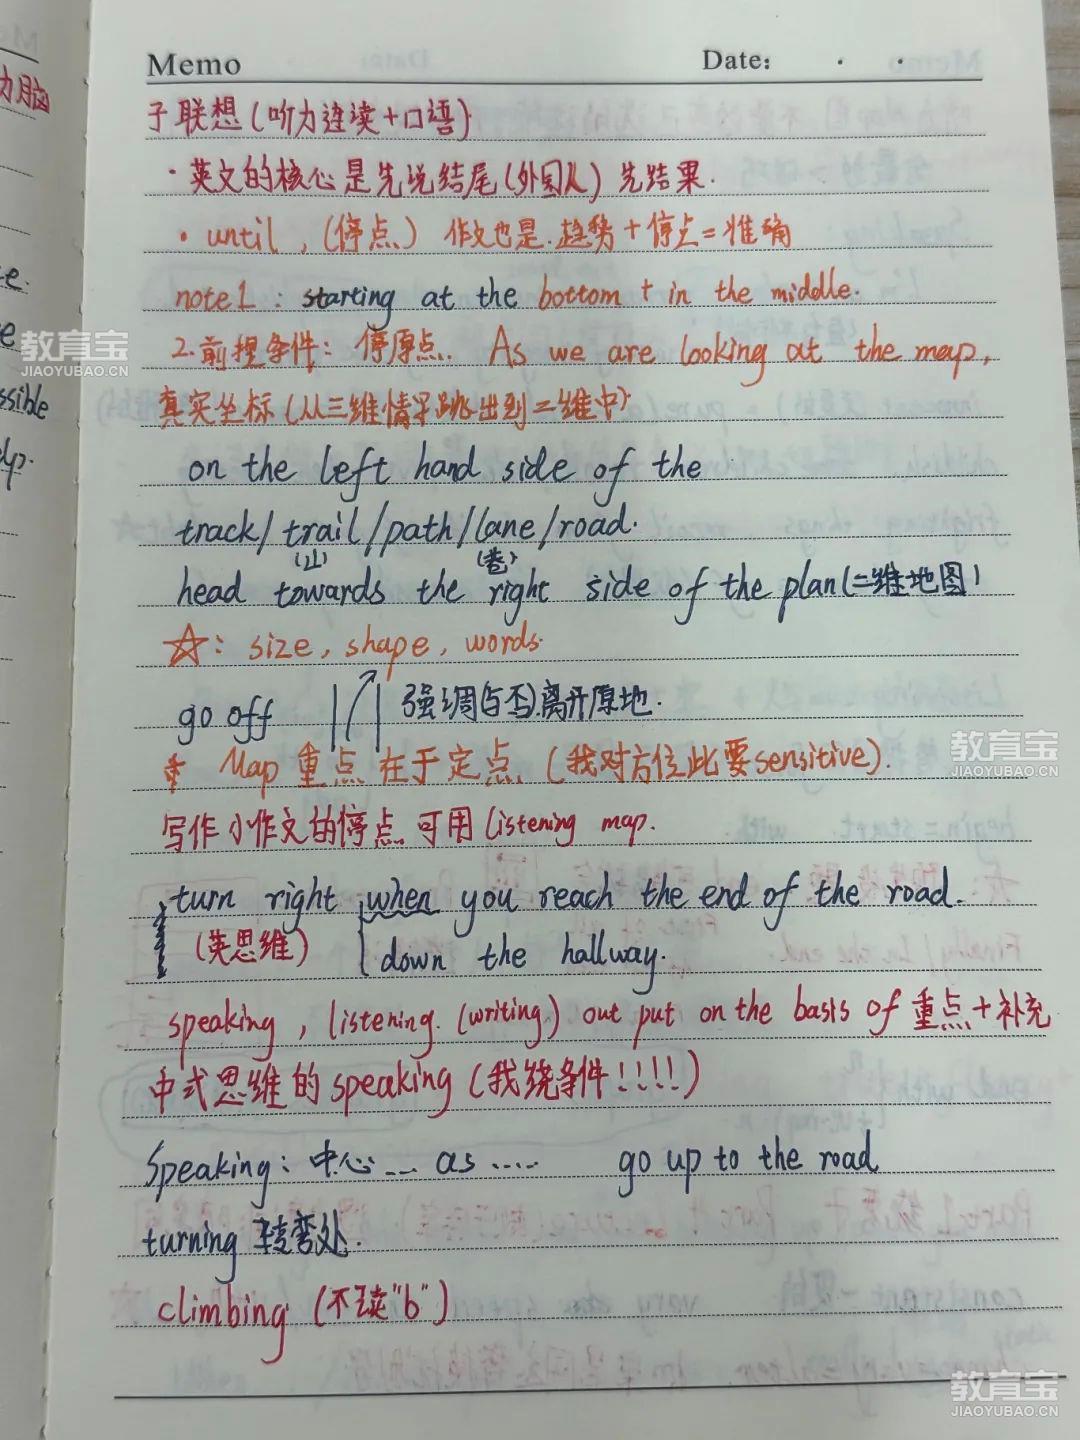 Memo Date:
力脑
子联想(听力连读+口语)
·英文的核心是先说结尾(外国人)先结果.
·until,(停点) 作文也是.趋势+停点=准确
note1: starting at the bottom + in the middle.
2.前提条件: 停原点. As we are looking at the map,
真实坐标(从三维情景跳出到二维中)
on the left hand side of the
track/trail/path/lane/road.
(山) (巷)
head towards the right side of the plan(二维地图)
☆: size, shape, words.
go off 强调(与否)离开原地.
Map 重点在于定点 (我对方位比要sensitive).
写作小作文的停点可用 listening map.
turn right when you reach the end of the road.
(英思维) down the hallway.
speaking, listening. (writing) out put on the basis of 重点+补充
中式思维的speaking(我绕条件!!!!)
Speaking: 中心... as ..... go up to the road
turning 转弯处.
climbing (不读"b")
教育宝
JIAOYUBAO.CN
教育宝
JIAOYUBAO.CN
教育宝
JIAOYUBAO.CN